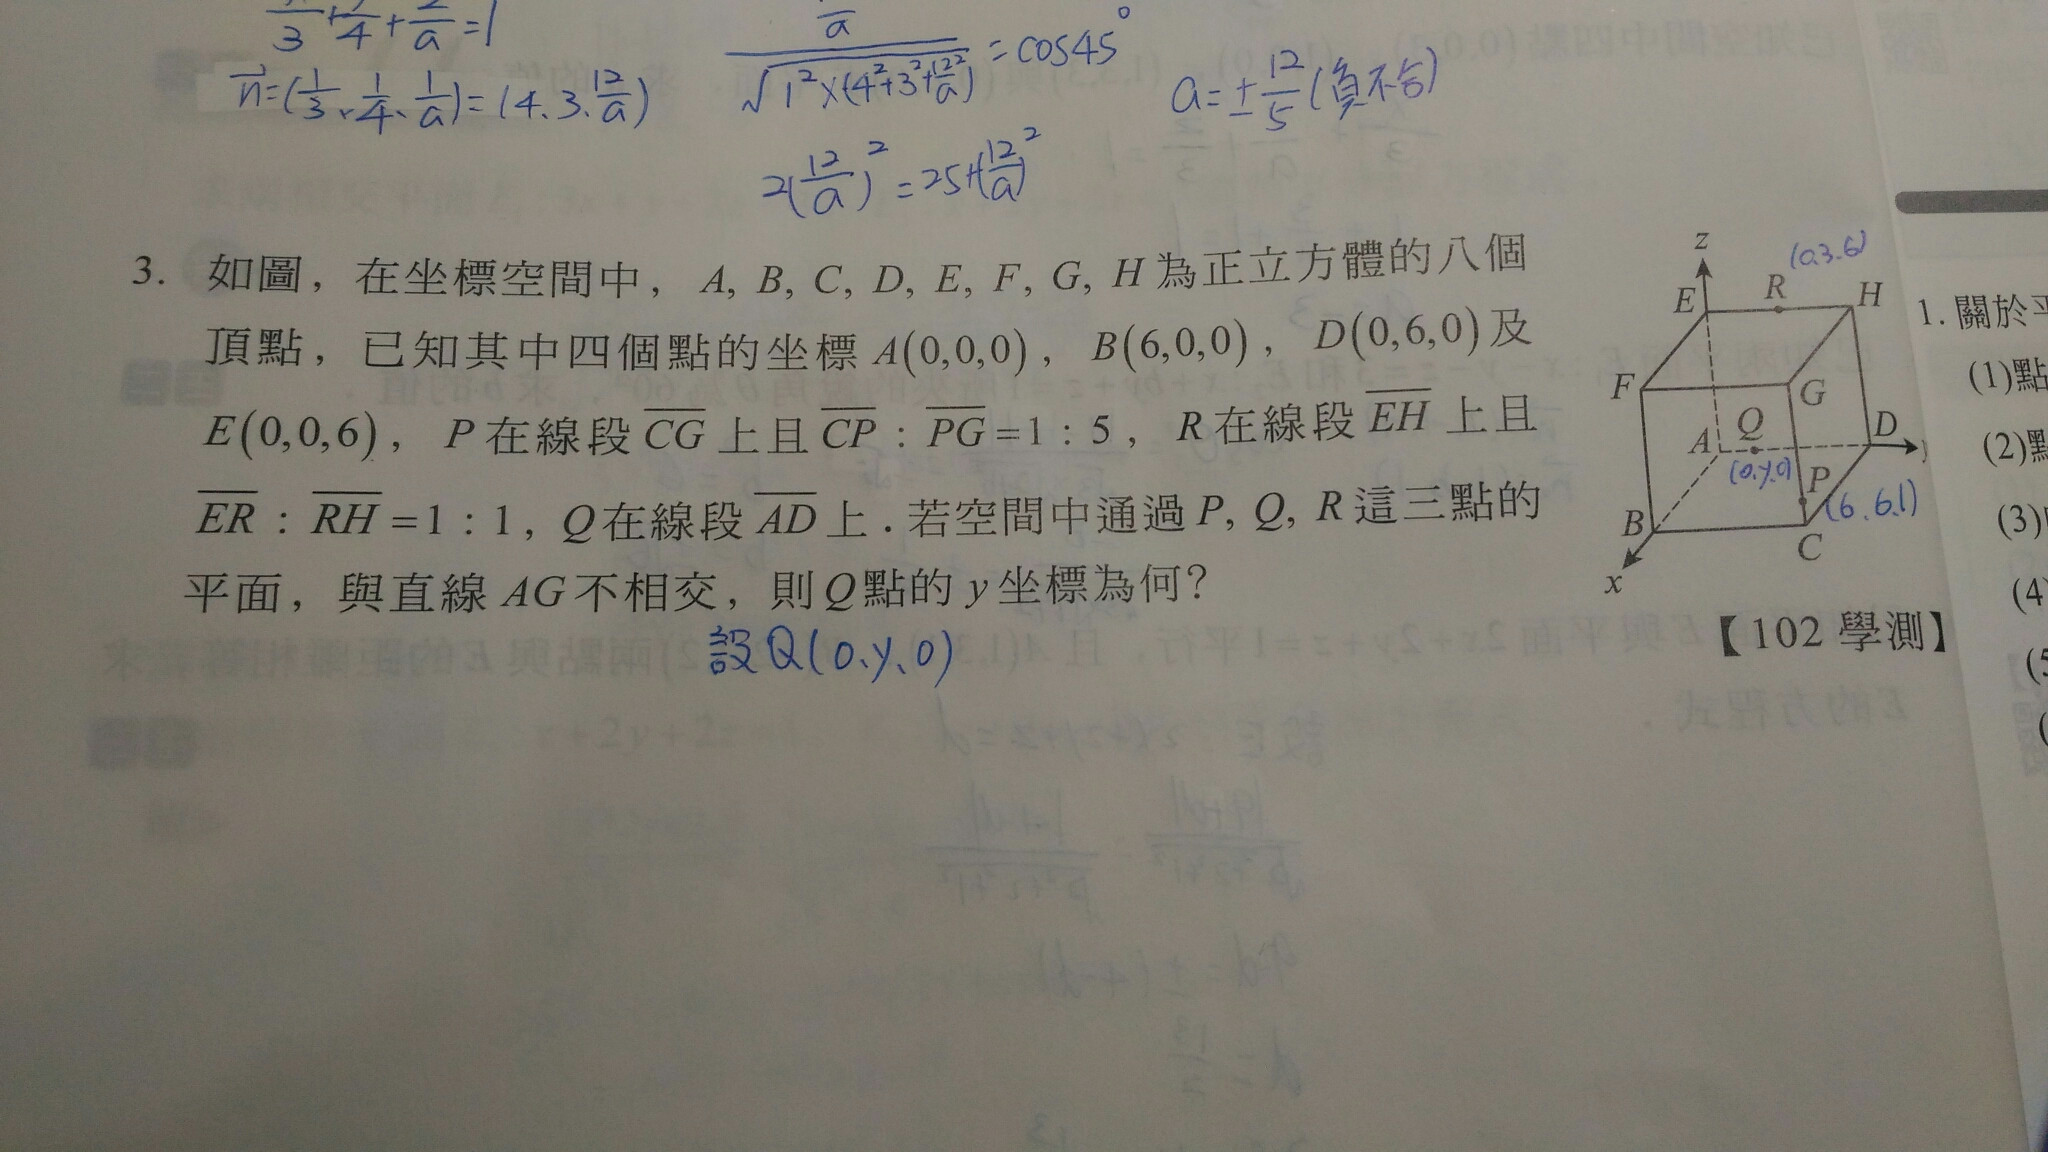 3 + 4 + a = 1
n⃗=(1/3、1/4、1/a)=(4、3、12/a)
12/a / √1²×(4²+3²+(12/a)²) = cos45°
a=±12/5(負不合)
2(12/a)²=25+(12/a)²
3. 如圖，在坐標空間中，A, B, C, D, E, F, G, H為正立方體的八個
頂點，已知其中四個點的坐標A(0,0,0)，B(6,0,0)，D(0,6,0)及
E(0,0,6)，P在線段CG上且CP：PG=1：5，R在線段EH上且
ER：RH=1：1，Q在線段AD上．若空間中通過P, Q, R這三點的
平面，與直線AG不相交，則Q點的y坐標為何?
【102學測】
設Q(0、y、0)
z
(0.3.6)
E
R
H
F
G
A
Q
D
(0.y.0)
P
B
(6.6.1)
C
x
1. 關於平
(1)點
(2)
(3)
(4)
(5
(